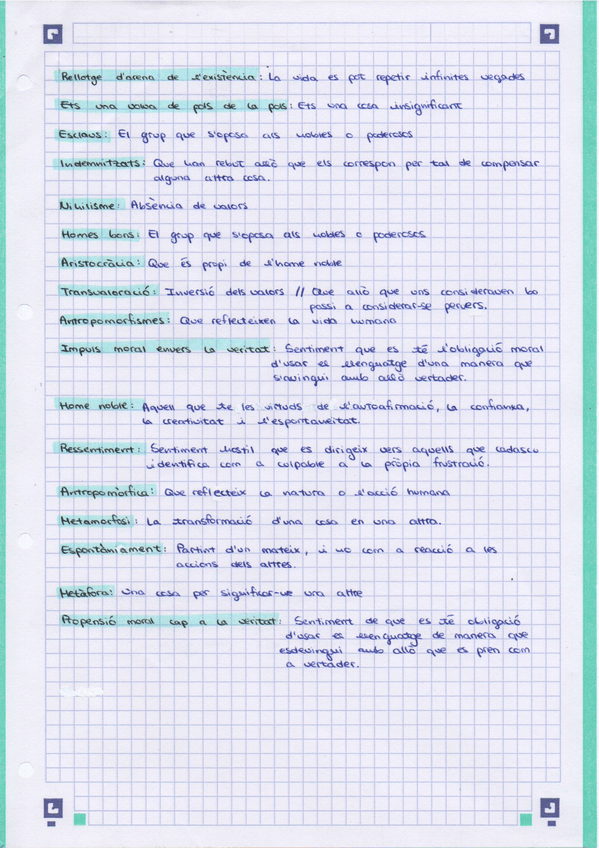 Rellotge d'arena de l'existència: La vida es pot repetir infinites vegades
Ets una volva de pols de la pols: Ets una cosa insignificant
Esclaus: El grup que s'oposa als nobles o poderosos
Indemnitzats: Que han rebut allò que els correspon per tal de compensar
alguna altra cosa.
Nihilisme: Absència de valors
Homes bons: El grup que s'oposa als nobles o poderosos
Aristocràcia: Que és propi de l'home noble
Transvaloració: Inversió dels valors // Que allò que uns consideraven bo
passi a considerar-se pervers.
Antropomorfismes: Que reflecteixen la vida humana
Impuls moral envers la veritat: Sentiment que es té l'obligació moral
d'usar el llenguatge d'una manera que
s'avingui amb allò vertader.
Home noble: Aquell que té les virtuds de l'autoafirmació, la confiança,
la creativitat i l'espontaneïtat.
Ressentiment: Sentiment hostil que es dirigeix vers aquells que cadascú
identifica com a culpable a la pròpia frustració.
Antropomòrfica: Que reflecteix la natura o l'acció humana
Metamorfosi: La transformació d'una cosa en una altra.
Espontàniament: Partint d'un mateix, i no com a reacció a les
accions dels altres.
Metàfora: Una cosa per significar-ne una altre
Propensió moral cap a la veritat: Sentiment de que es té obligació
d'usar el llenguatge de manera que
esdevingui amb allò que es pren com
a vertader.